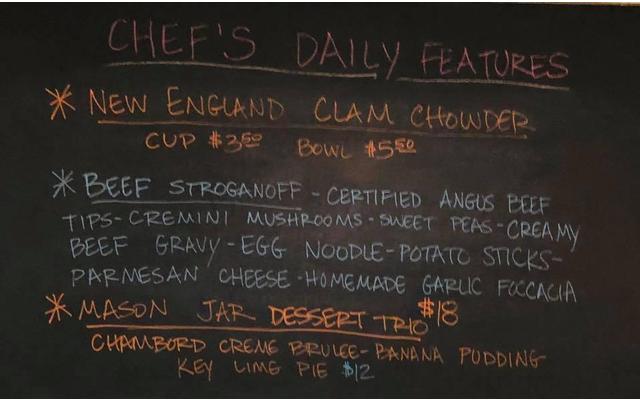 CHEF'S DAILY FEATURES
* NEW ENGLAND CLAM CHOWDER
CUP $3.50 BOWL $5.50
* BEEF STROGANOFF - CERTIFIED ANGUS BEEF
TIPS - CREMINI MUSHROOMS - SWEET PEAS - CREAMY
BEEF GRAVY - EGG NOODLE - POTATO STICKS -
PARMESAN CHEESE - HOMEMADE GARLIC FOCCACIA
$18
* MASON JAR DESSERT TRIO
CHAMBORD CREME BRULEE - BANANA PUDDING -
KEY LIME PIE $12